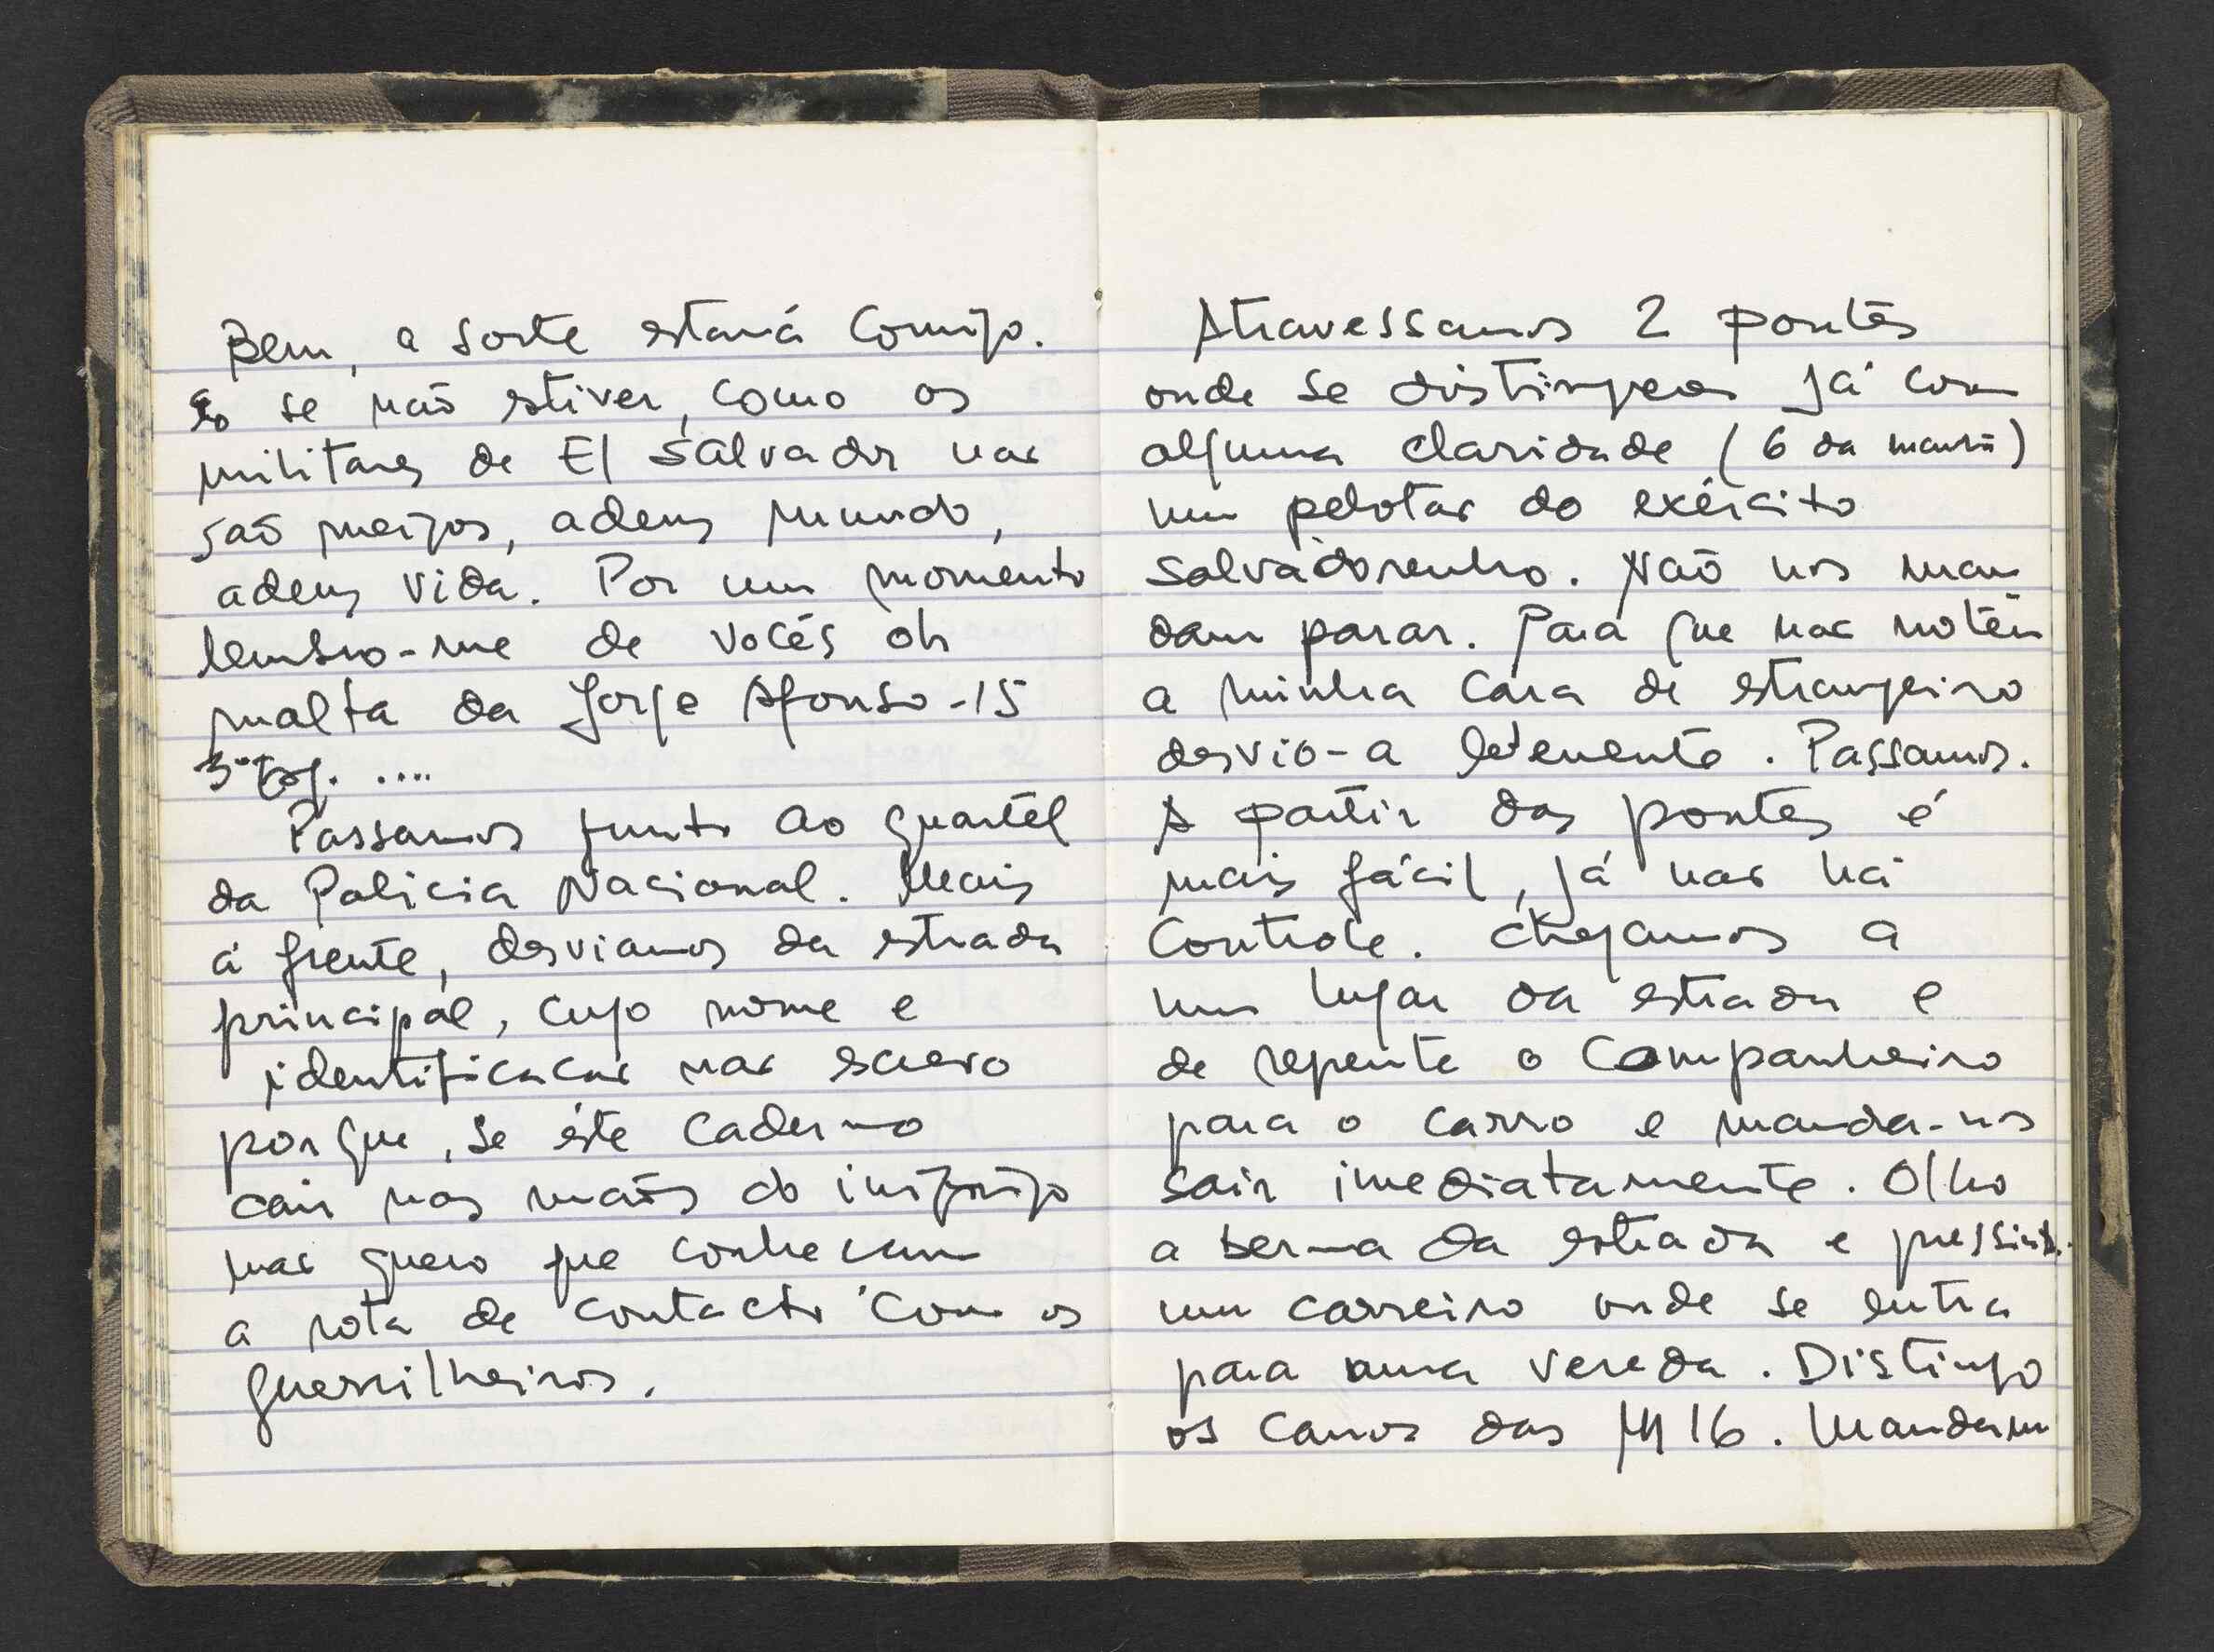 Bem, a sorte estará comigo.
e se não estiver, como os
militares de El Salvador não
são meigos, adeus mundo,
adeus vida. Por um momento
lembro-me de vocês oh
malta da Jorge Afonso-15
3º Esq. ....
Passamos junto ao quartel
da Policia Nacional. Mais
á frente, desviamos da estrada
principal, cujo nome e
identificacão não escrevo
porque, se éste caderno
cair nas mãos do inimigo
não quero que conhecam
a rota de contacto com os
guerrilheiros.
Atravessamos 2 pontes
onde se distingue já com
alguma claridade (6 da manhã)
um pelotão do exército
salvadorenho. Não nos man
dam parar. Para que não notem
a minha cara de estrangeiro
desvio-a levemente. Passamos.
A partir das pontes é
mais fácil, já não há
controle. Chegamos a
um lugar da estrada e
de repente o companheiro
para o carro e manda-nos
sair imediatamente. Olho
a berma da estrada e pressinto
um carreiro onde se entra
para uma vereda. Distingo
os canos das M16. Mandam